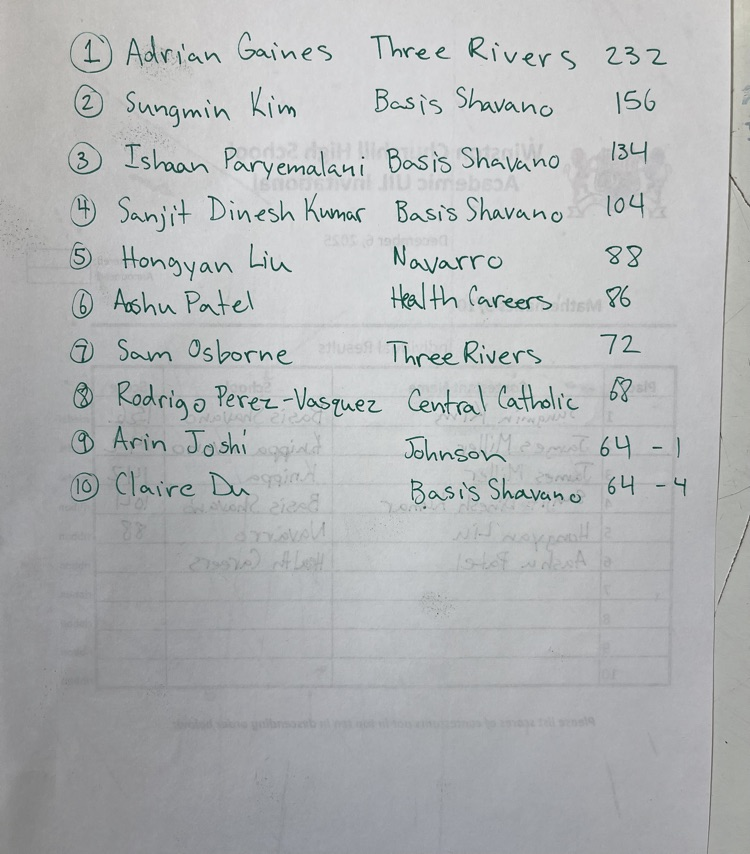 ① Adrian Gaines Three Rivers 232
② Sungmin Kim Basis Shavano 156
③ Ishaan Paryemalani Basis Shavano 134
④ Sanjit Dinesh Kumar Basis Shavano 104
⑤ Hongyan Liu Navarro 88
⑥ Aashu Patel Health Careers 86
⑦ Sam Osborne Three Rivers 72
⑧ Rodrigo Perez-Vasquez Central Catholic 68
⑨ Arin Joshi Johnson 64 - 1
⑩ Claire Du Basis Shavano 64 - 4